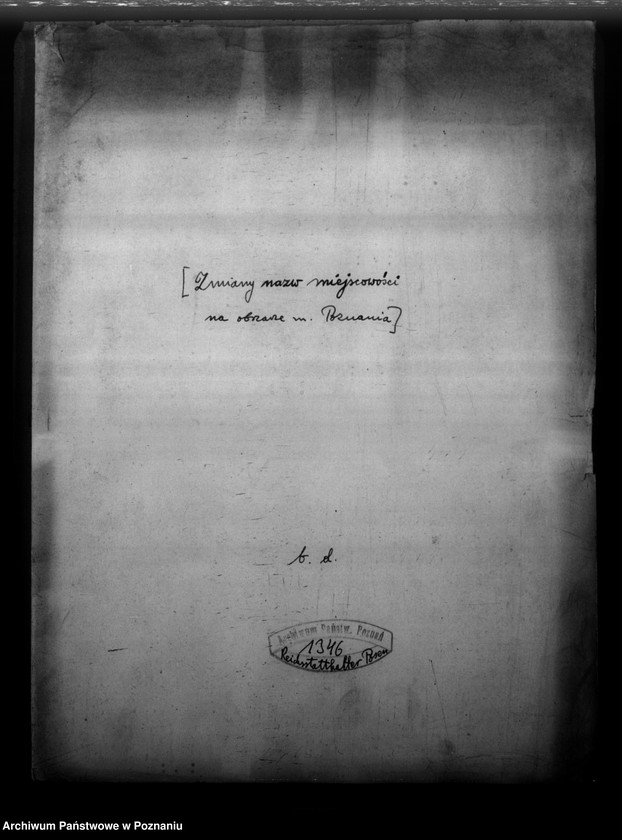 [Zmiany nazw miejscowości
na obszarze m. Poznania]
b. d.
Archiwum Państw. Poznań
1346
Reichsstatthalter Posen
Archiwum Państwowe w Poznaniu